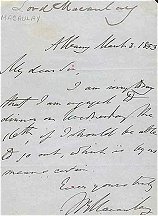 Lord Macaulay
MACAULAY
Albany March 3. 1853
My dear Sir,
I am very sorry
that I am engaged to
dinner on Wednesday the
16th if I should be able
to go out, which is by no
means certain.
Ever yours truly
TBMacaulay